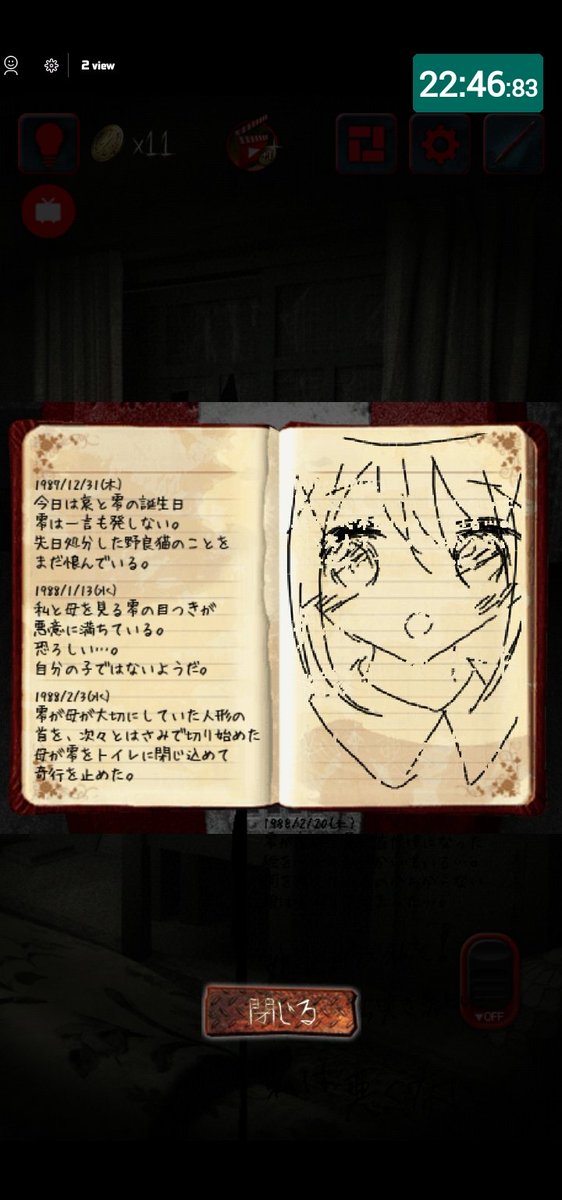 2 view
22:46:83
x11
1987/12/31(木)
今日は哀と零の誕生日
零は一言も発しない。
先日処分した野良猫のことを
まだ恨んでいる。
1988/1/13(水)
私と母を見る零の目つきが
悪意に満ちている。
恐ろしい…。
自分の子ではないようだ。
1988/2/3(水)
零が母が大切にしていた人形の
首を、次々とはさみで切り始めた
母が零をトイレに閉じ込めて
奇行を止めた。
1988/2/20(土)
閉じる
▼OFF